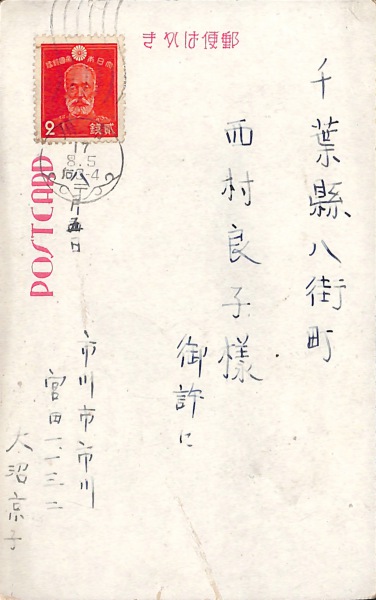 郵便はがき
千葉縣八街町
西村良子様
御許に
大日本帝國郵便
2
貳錢
17
8.5
-4
POSTCARD
八月五日
市川市市川
宮田一、一三二
大沼京子